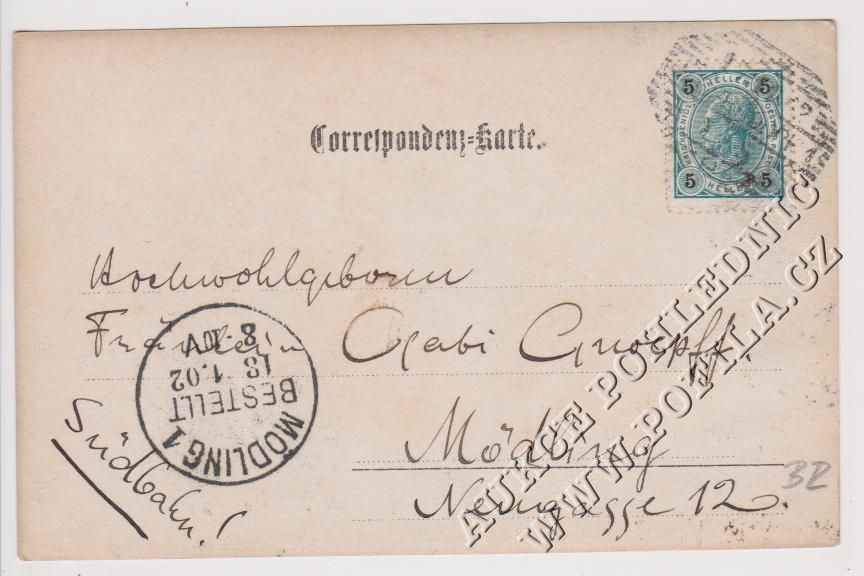 Correspondenz-Karte.
5 HELLER 5
5 HELLER 5
Hochwohlgeboren
Fräulein Gabi Gnoepff
Mödling
Neugasse 12.
Südbahn!
MÖDLING 1
BESTELLT
13 1.02
8
AUKCE POHLEDNIC
WWW.POPILA.CZ